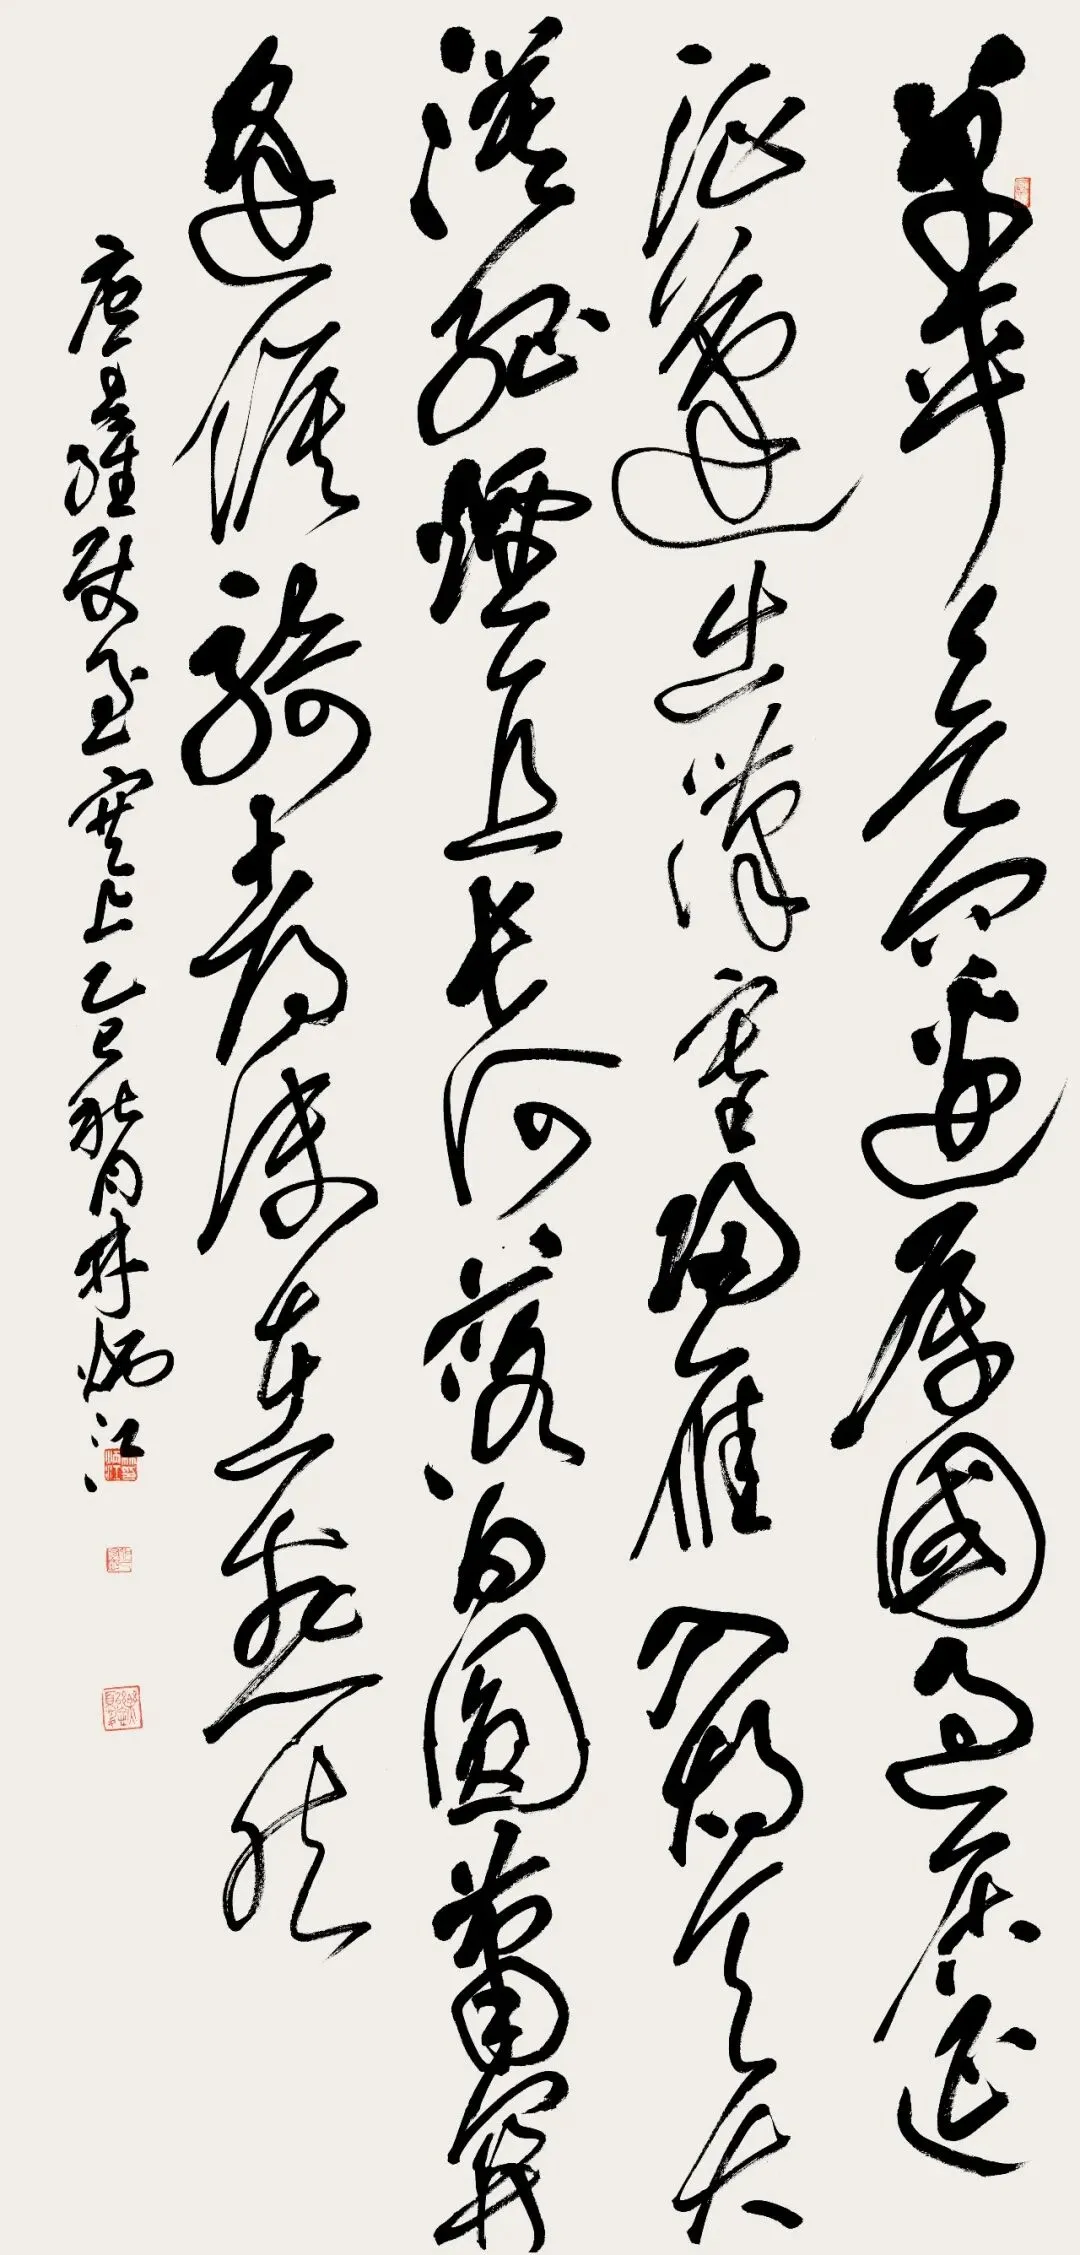 單車欲問邊屬國過居延
征蓬出漢塞歸雁入胡天大
漠孤煙直長河落日圓蕭關
逢候騎都護在燕然
唐王維使至塞上乙巳秋月林炳江